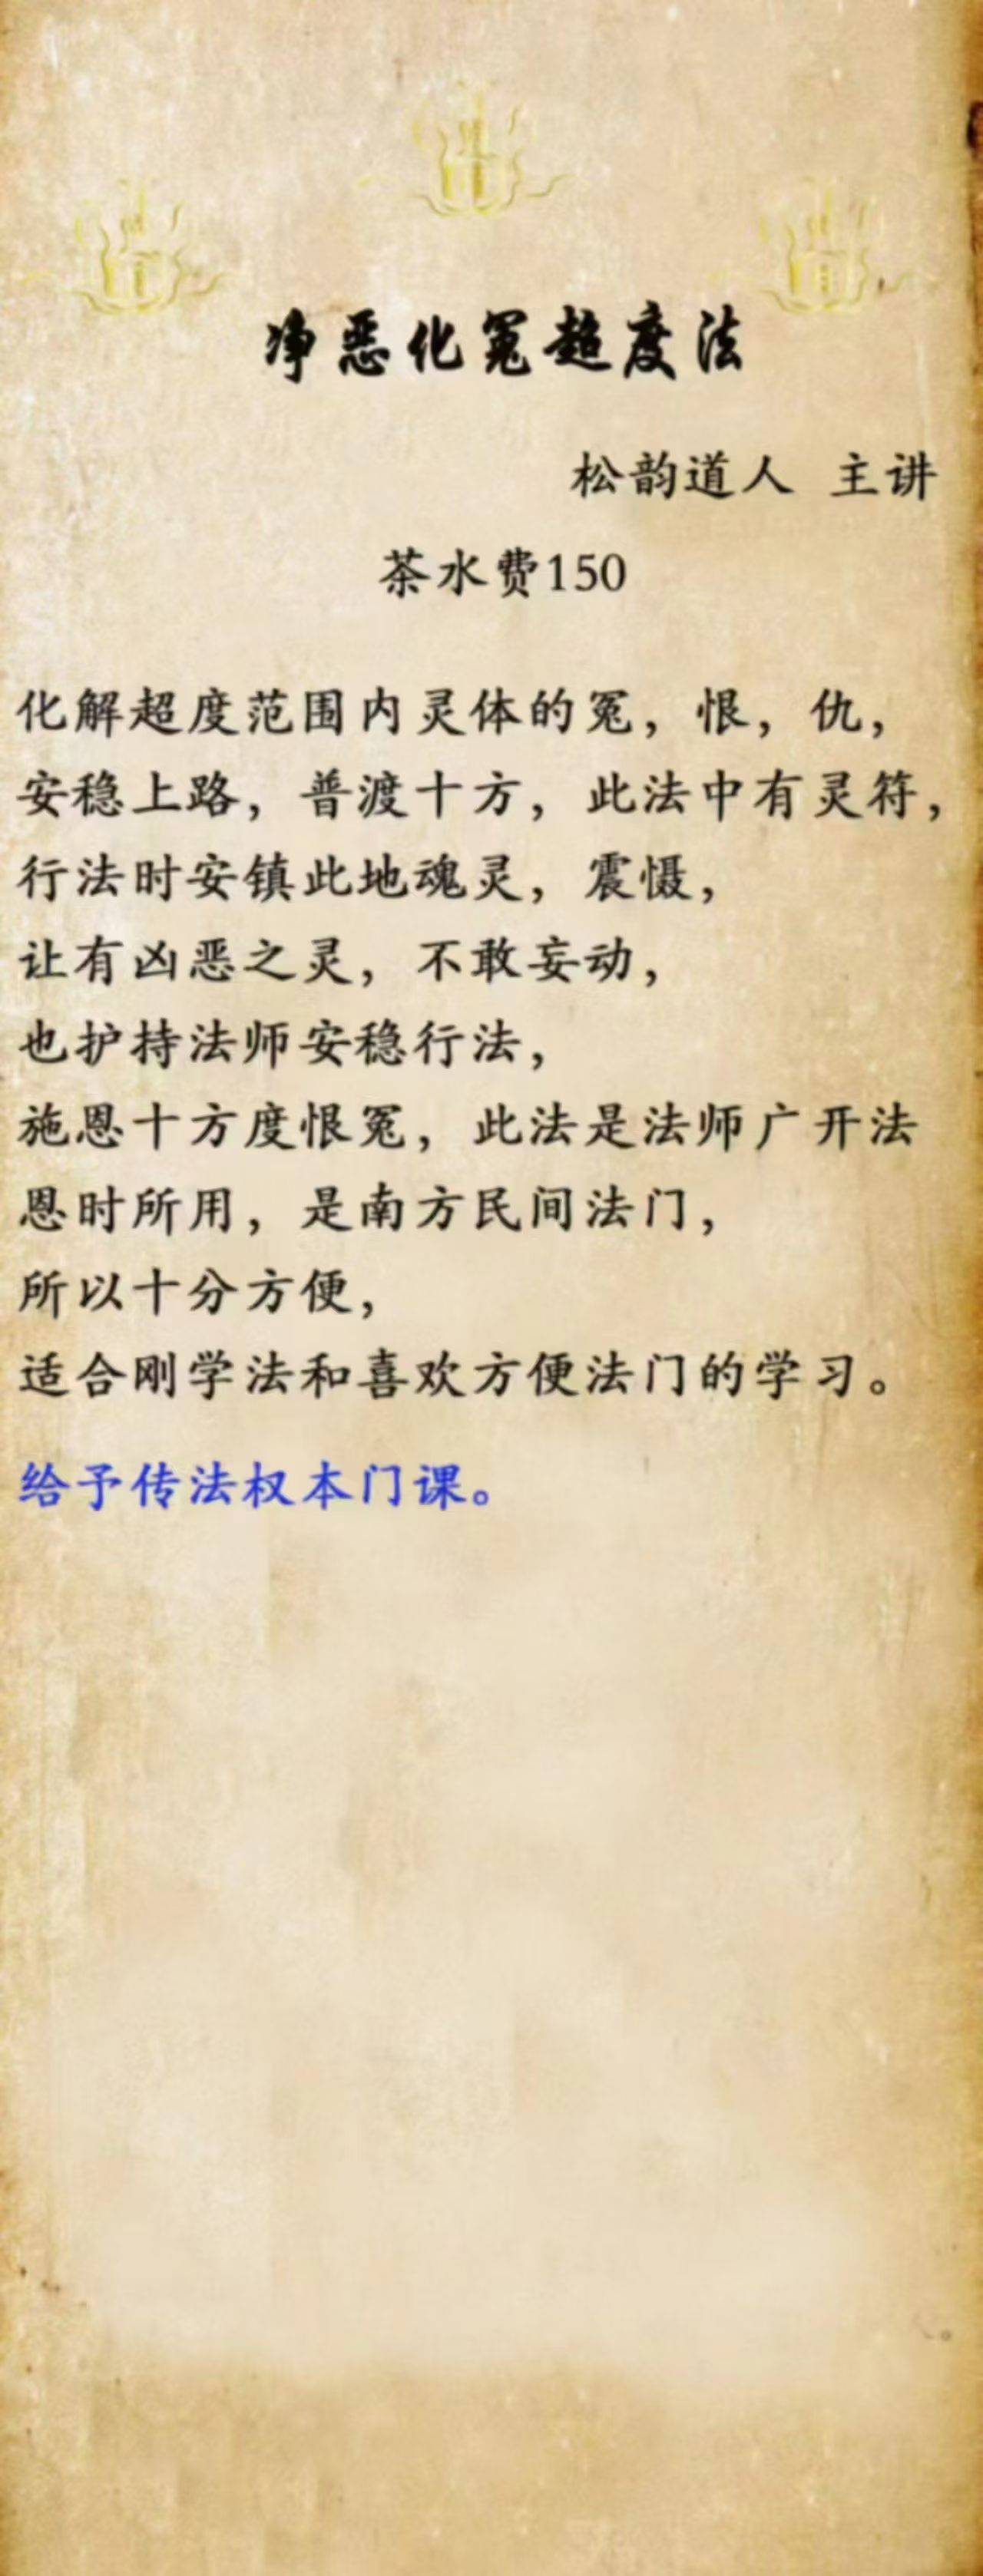 净恶化冤超度法
松韵道人 主讲
茶水费150
化解超度范围内灵体的冤，恨，仇，
安稳上路，普渡十方，此法中有灵符，
行法时安镇此地魂灵，震慑，
让有凶恶之灵，不敢妄动，
也护持法师安稳行法，
施恩十方度恨冤，此法是法师广开法
恩时所用，是南方民间法门，
所以十分方便，
适合刚学法和喜欢方便法门的学习。
给予传法权本门课。